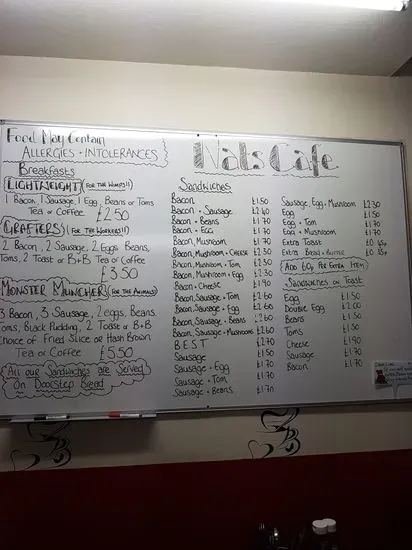 Food May Contain
ALLERGIES + INTOLERANCES
Breakfasts
LIGHTWEIGHT (FOR THE WIMPS!!)
1 Bacon, 1 Sausage, 1 Egg, Beans or Toms
Tea or Coffee £2.50
GRAFTERS (FOR THE WORKERS!!)
2 Bacon, 2 Sausage, 2 Eggs Beans,
Toms, 2 Toast or B+B Tea or Coffee
£3.50
MONSTER MUNCHER (FOR THE ANIMALS)
3 Bacon, 3 Sausage, 2 eggs, Beans,
Toms, Black Pudding, 2 Toast or B+B
Choice of Fried Slice or Hash Brown
Tea or Coffee £5.50
All our Sandwiches are Served
On Doorstep Bread
Nals Cafe
Sandwiches
Bacon £1.50
Bacon + Sausage £2.40
Bacon + Beans £1.70
Bacon + Egg £1.70
Bacon, Musroom £1.70
Bacon, Mushroom + Cheese £2.30
Bacon, Mushroom + Tom £2.30
Bacon, Mushroom + Egg £2.30
Bacon + Cheese £1.90
Bacon, Sausage + Tom £2.60
Bacon, Sausage + Egg £2.60
Bacon, Sausage + Beans £2.60
Bacon, Sausage + Mushrooms £2.60
B.E.S.T £2.70
Sausage £1.50
Sausage + Egg £1.70
Sausage + Tom £1.70
Sausage + Beans £1.70
Sausage, Egg, Mushroom £2.30
Egg £1.50
Egg + Tom £1.70
Egg + Mushroom £1.70
Extra Toast £0.45p
Extra Bread + Butter £0.35p
(ADD 60p FOR EXTRA ITEM)
Sandwiches on Toast
Egg £1.50
Double Egg £2.00
Beans £1.50
Toms £1.50
Cheese £1.90
Sausage £1.70
Bacon £1.70